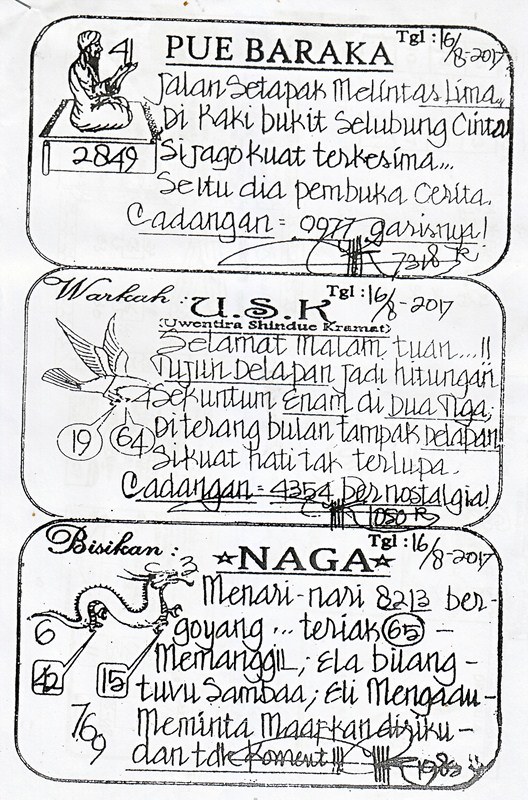 41
PUE BARAKA
Tgl : 16/8-2017
Jalan Setapak Melintas Lima,,
Di Kaki bukit Selubung Cinta
2849
Si jago kuat terkesima...
Seitu dia pembuka Cerita.
Cadangan = 0977 garisnya!
7318 R
Warkah :
U.S.K
Tgl : 16/8-2017
(Uwentira Shindue Kramat)
Selamat Malam tuan...!!
Tujuh Delapan Jadi hitungan
4 Sekuntum Enam di Dua Tiga,
19 64
Diterang bulan tampak Delapan
Sikuat hati tak terlupa.
Cadangan = 4354 bernostalgia!
1050 R
Bisikan :
☆NAGA☆
Tgl : 16/8-2017
C 3
Menari-nari 8213 ber-
6
goyang ... teriak 65 -
Memanggil; Ela bilang -
42 15
tuvu Sambaa; Eli Mengadu -
769
Meminta Maafkan diriku -
dan tak Koment!!